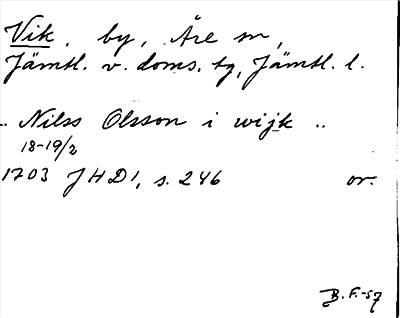 Vik, by, Åre sn,
Jämtl. v. doms. tg, Jämtl. l.
.. Nilss Olsson i wijk ..
18-19/2
1703 JHD1, s. 246 or.
B. F. -57